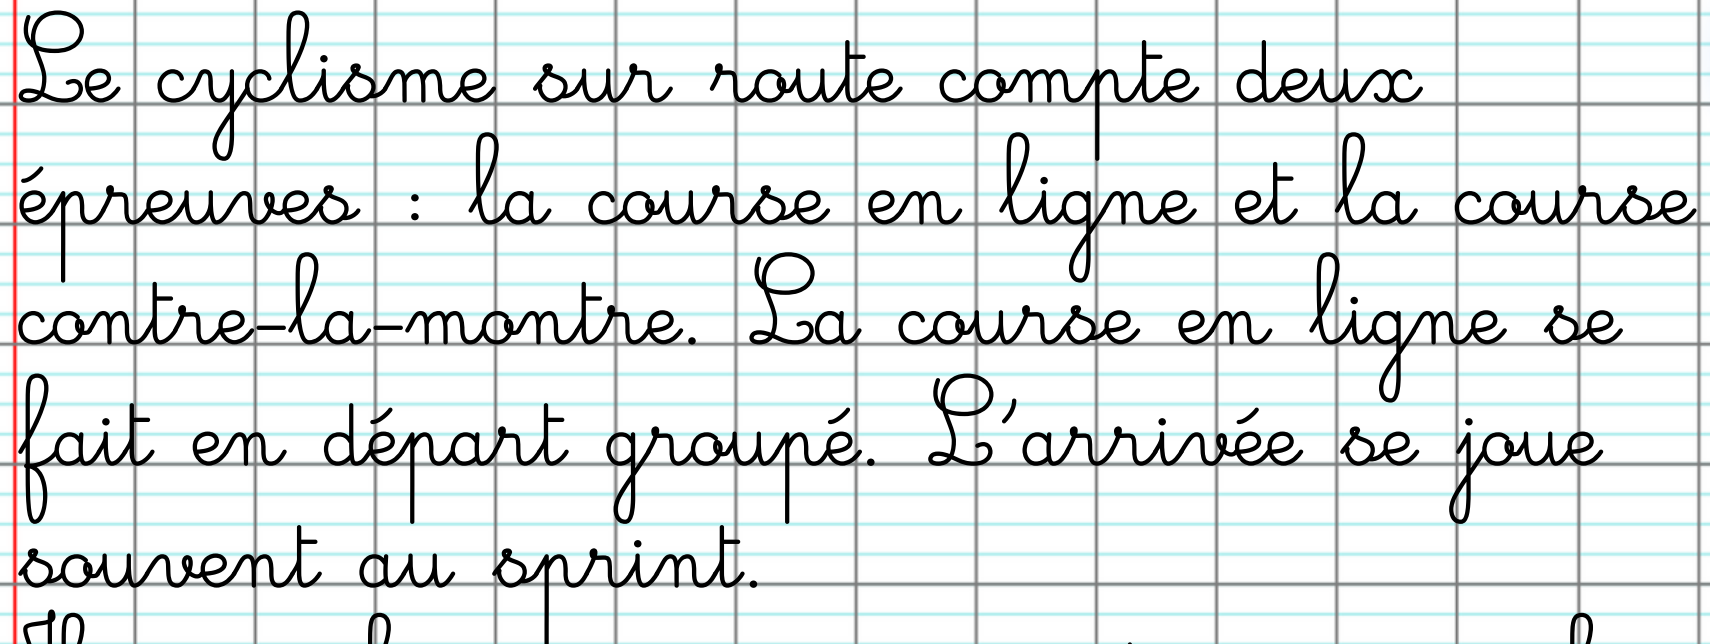 Le cyclisme sur route compte deux
épreuves : la course en ligne et la course
contre-la-montre. La course en ligne se
fait en départ groupé. L'arrivée se joue
souvent au sprint.